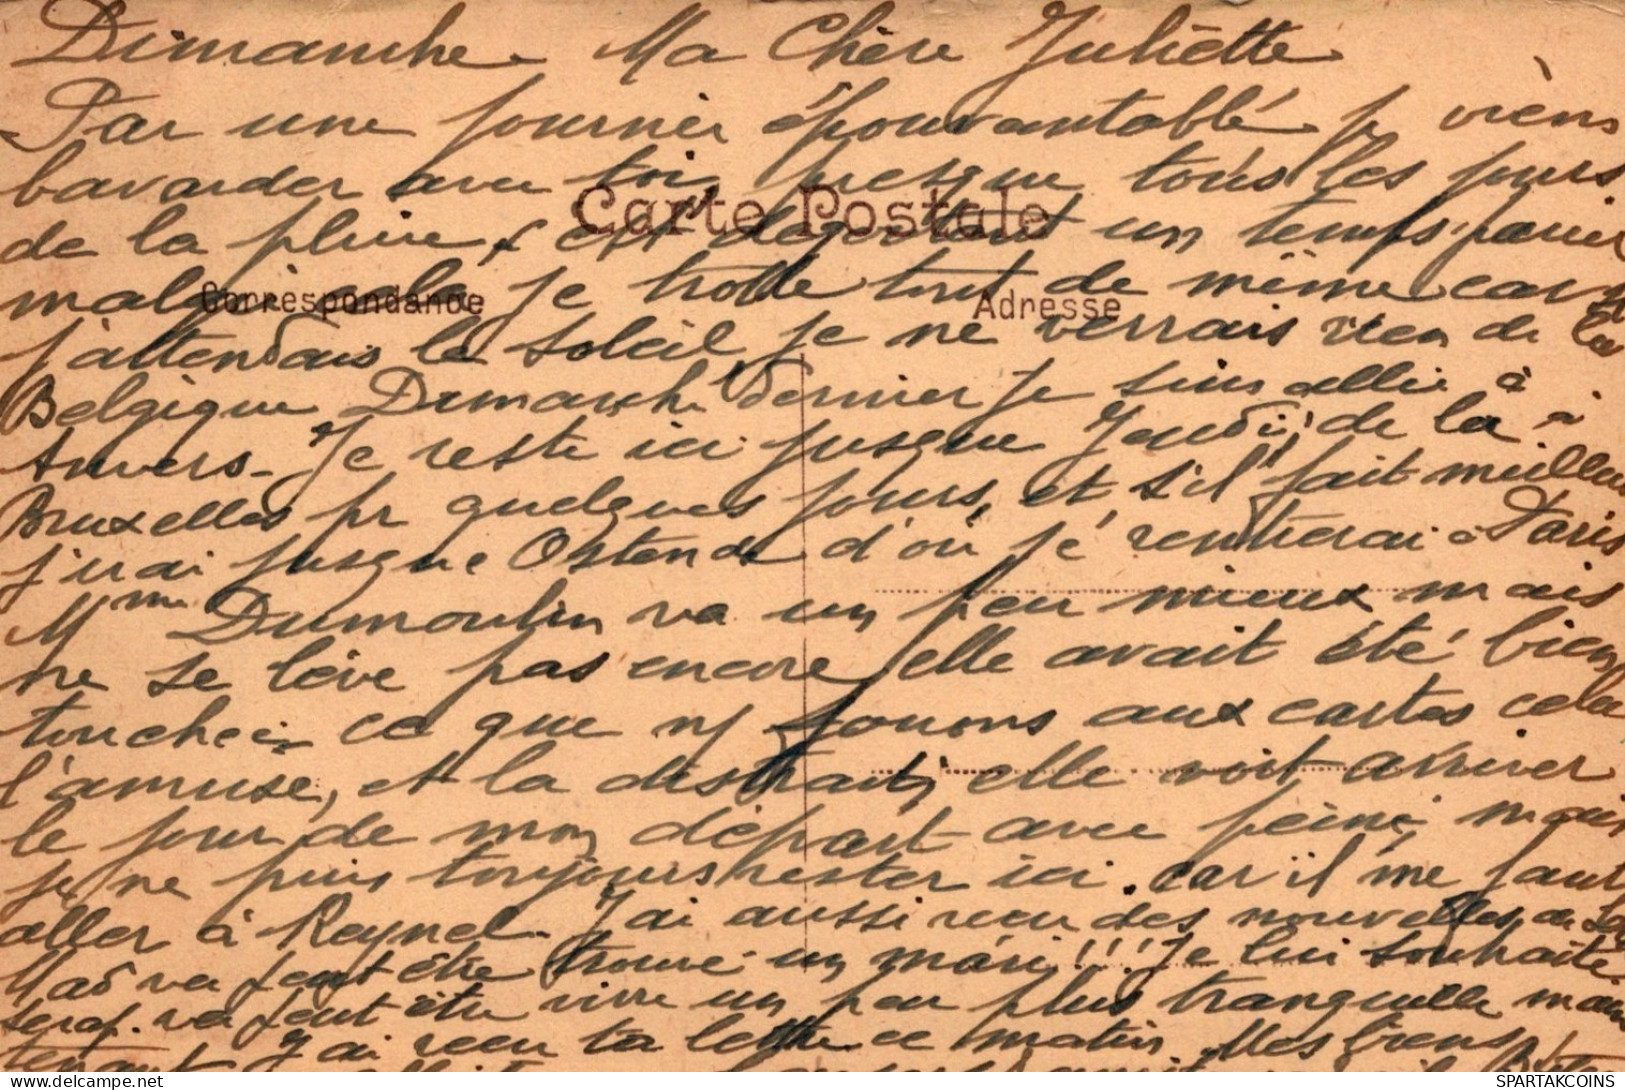 Dimanche. Ma Chère Juliette
Par une journée épouvantable je viens
bavarder avec toi, presque tous les jours
Carte Postale
de la pluie, c'est dégoûtant un temps pareil
malgré cela je trotte tout de même car si
Correspondance Adresse
j'attendais le soleil je ne verrais rien de la
Belgique. Dimanche dernier je suis allée à
Anvers - Je reste ici jusque Jeudi, de là à
Bruxelles pr quelques jours, et s'il fait meilleur
j'irai jusque Ostende d'où je rentrerai à Paris
Mme Dumoulin va un peu mieux mais
ne se lève pas encore, elle avait été bien
touchée, ce que ns jouons aux cartes cela
l'amuse, et la distrait, elle voit arriver
le jour de mon départ avec peine, mais
je ne puis toujours rester ici. car il me faut
aller à Reynel. J'ai aussi reçu des nouvelles de
Mad va peut être trouver un mari!!! Je lui souhaite
va peut être vivre un peu plus tranquille main
tenant J'ai reçu ta lettre ce matin. Mes biens
SPARTAKCOINS